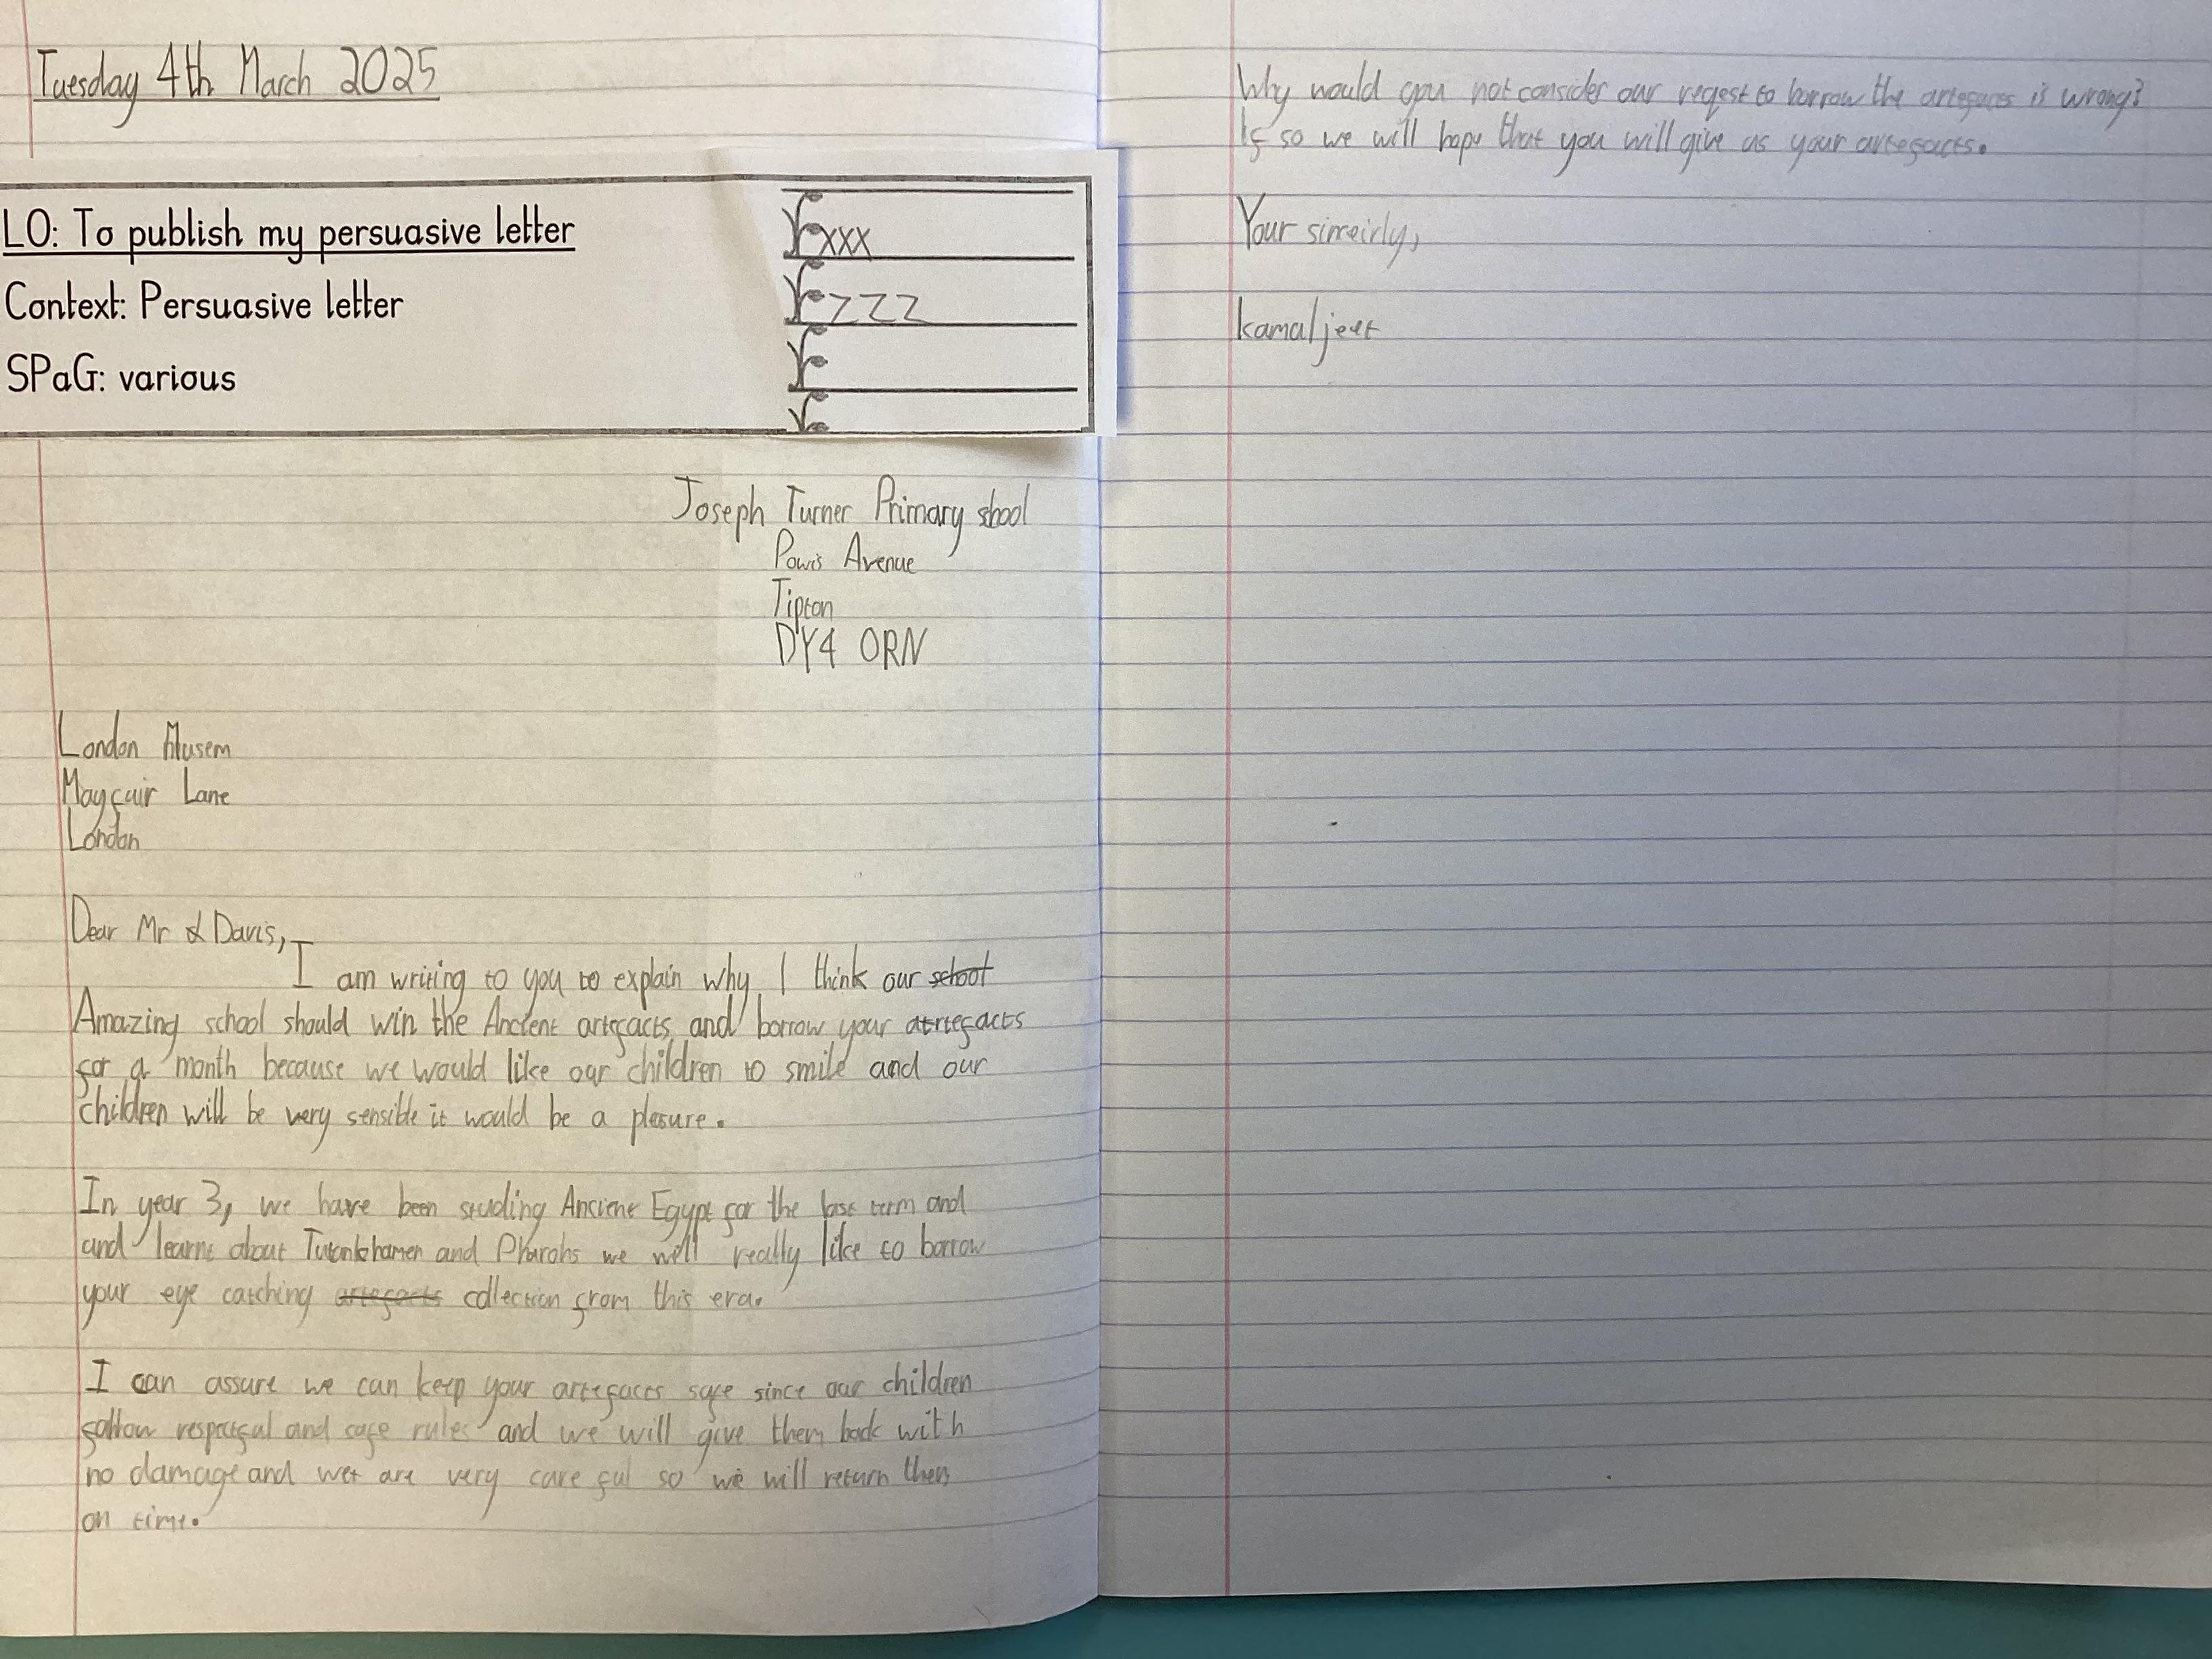 Tuesday 4th March 2025
LO: To publish my persuasive letter
Context: Persuasive letter
SPaG: various
xxx
zzz
Joseph Turner Primary shool
Powis Avenue
Tipton
DY4 0RN
London Musem
Mayfair Lane
London
Dear Mr Davis,
I am writing to you to explain why I think our school
Amazing school should win the Ancient artefacts and borrow your atrtefacts
for a month because we would like our children to smile and our
children will be very sensible it would be a plesure.
In year 3, we have been studing Ancient Egypt for the last term and
and learnt about Tutankhamen and Pharohs we will really like to borrow
your eye catching artefacts collection from this era.
I can assure we can keep your artefacts safe since our children
follow and safe rules and we will give them back with
no damage and wet are very care ful so we will return them
on time.
Why would you not consider our reqest to borrow the artefacts is wrong?
If so we will hope that you will give us your artefacts.
Your sinceirly,
kamaljeet